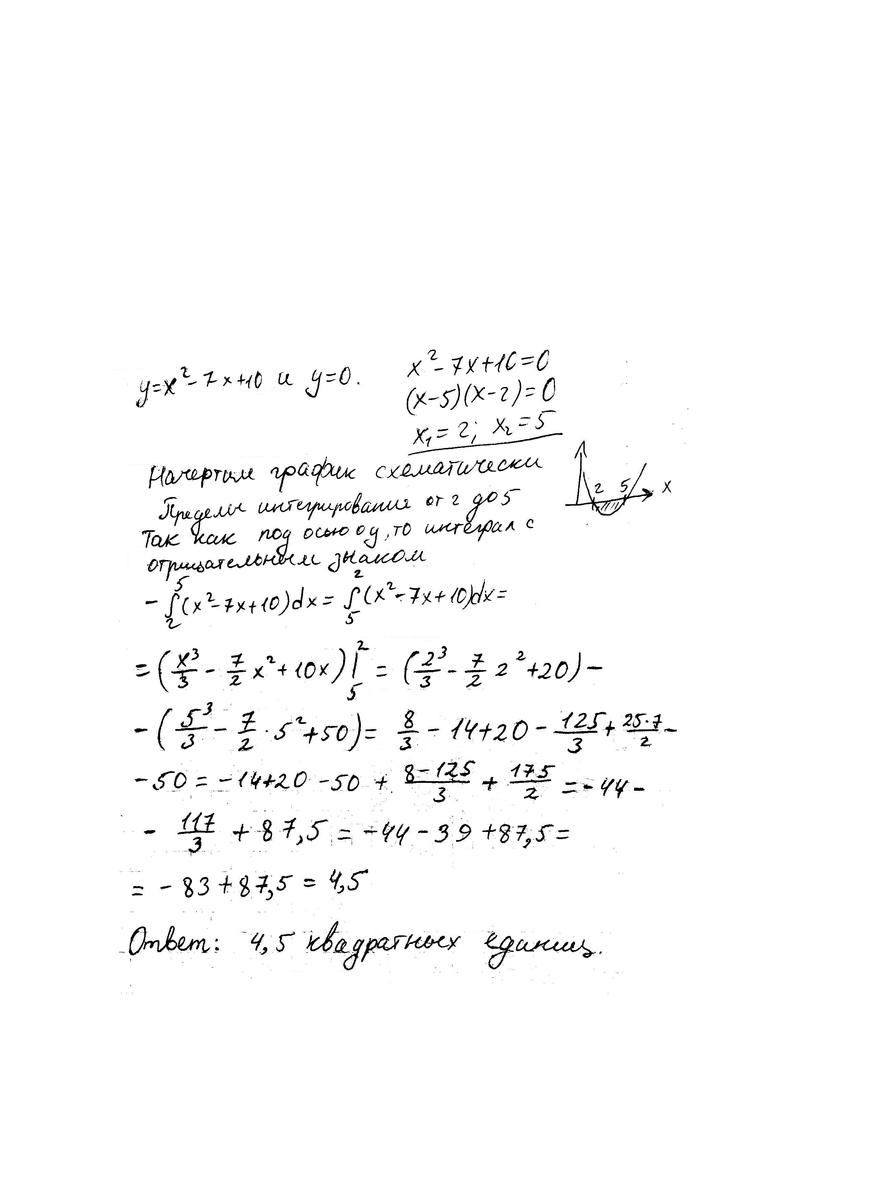 y=x²-7x+10 и y=0.
x²-7x+10=0
(x-5)(x-2)=0
x₁=2; x₂=5
Начертим график схематически
2 5 x
Пределы интегрирования от 2 до 5
Так как под осью oy, то интеграл с
отрицательным знаком
-∫₂⁵(x²-7x+10)dx=∫₅²(x²-7x+10)dx=
=(x³/3 - 7/2 x²+10x)|₅² = (2³/3 - 7/2 2²+20)-
-(5³/3 - 7/2·5²+50)= 8/3 -14+20- 125/3 + 25·7/2 -
-50=-14+20-50+ 8-125/3 + 175/2 =-44-
- 117/3 +87,5=-44-39+87,5=
=-83+87,5=4,5
Ответ: 4,5 квадратных единиц.